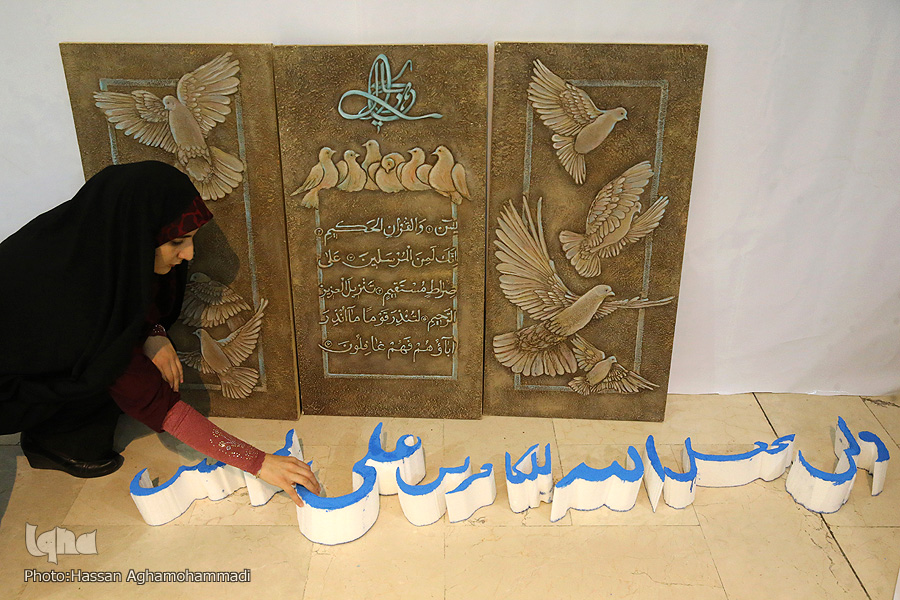 يسۤ ۞ وَالْقُرْآنِ الْحَكِيمِ ۞
إِنَّكَ لَمِنَ الْمُرْسَلِينَ ۞ عَلَى
صِرَاطٍ مُسْتَقِيمٍ ۞ تَنْزِيلَ الْعَزِيزِ
الرَّحِيمِ ۞ لِتُنْذِرَ قَوْمًا مَا أُنْذِرَ
آبَاؤُهُمْ فَهُمْ غَافِلُونَ ۞
ولن يجعل الله للكافرين على
iqna
Photo:Hassan Aghamohammadi